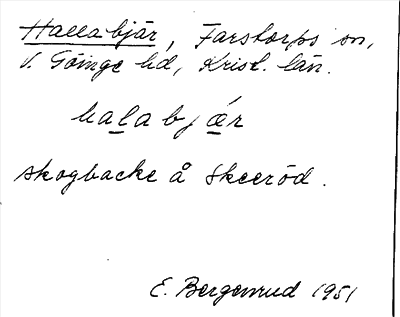 Hallabjär, Farstorps sn,
V. Göinge hd, Krist. län.
halabjær
skogbacke å Skeeröd.
E. Bergenrud 1951